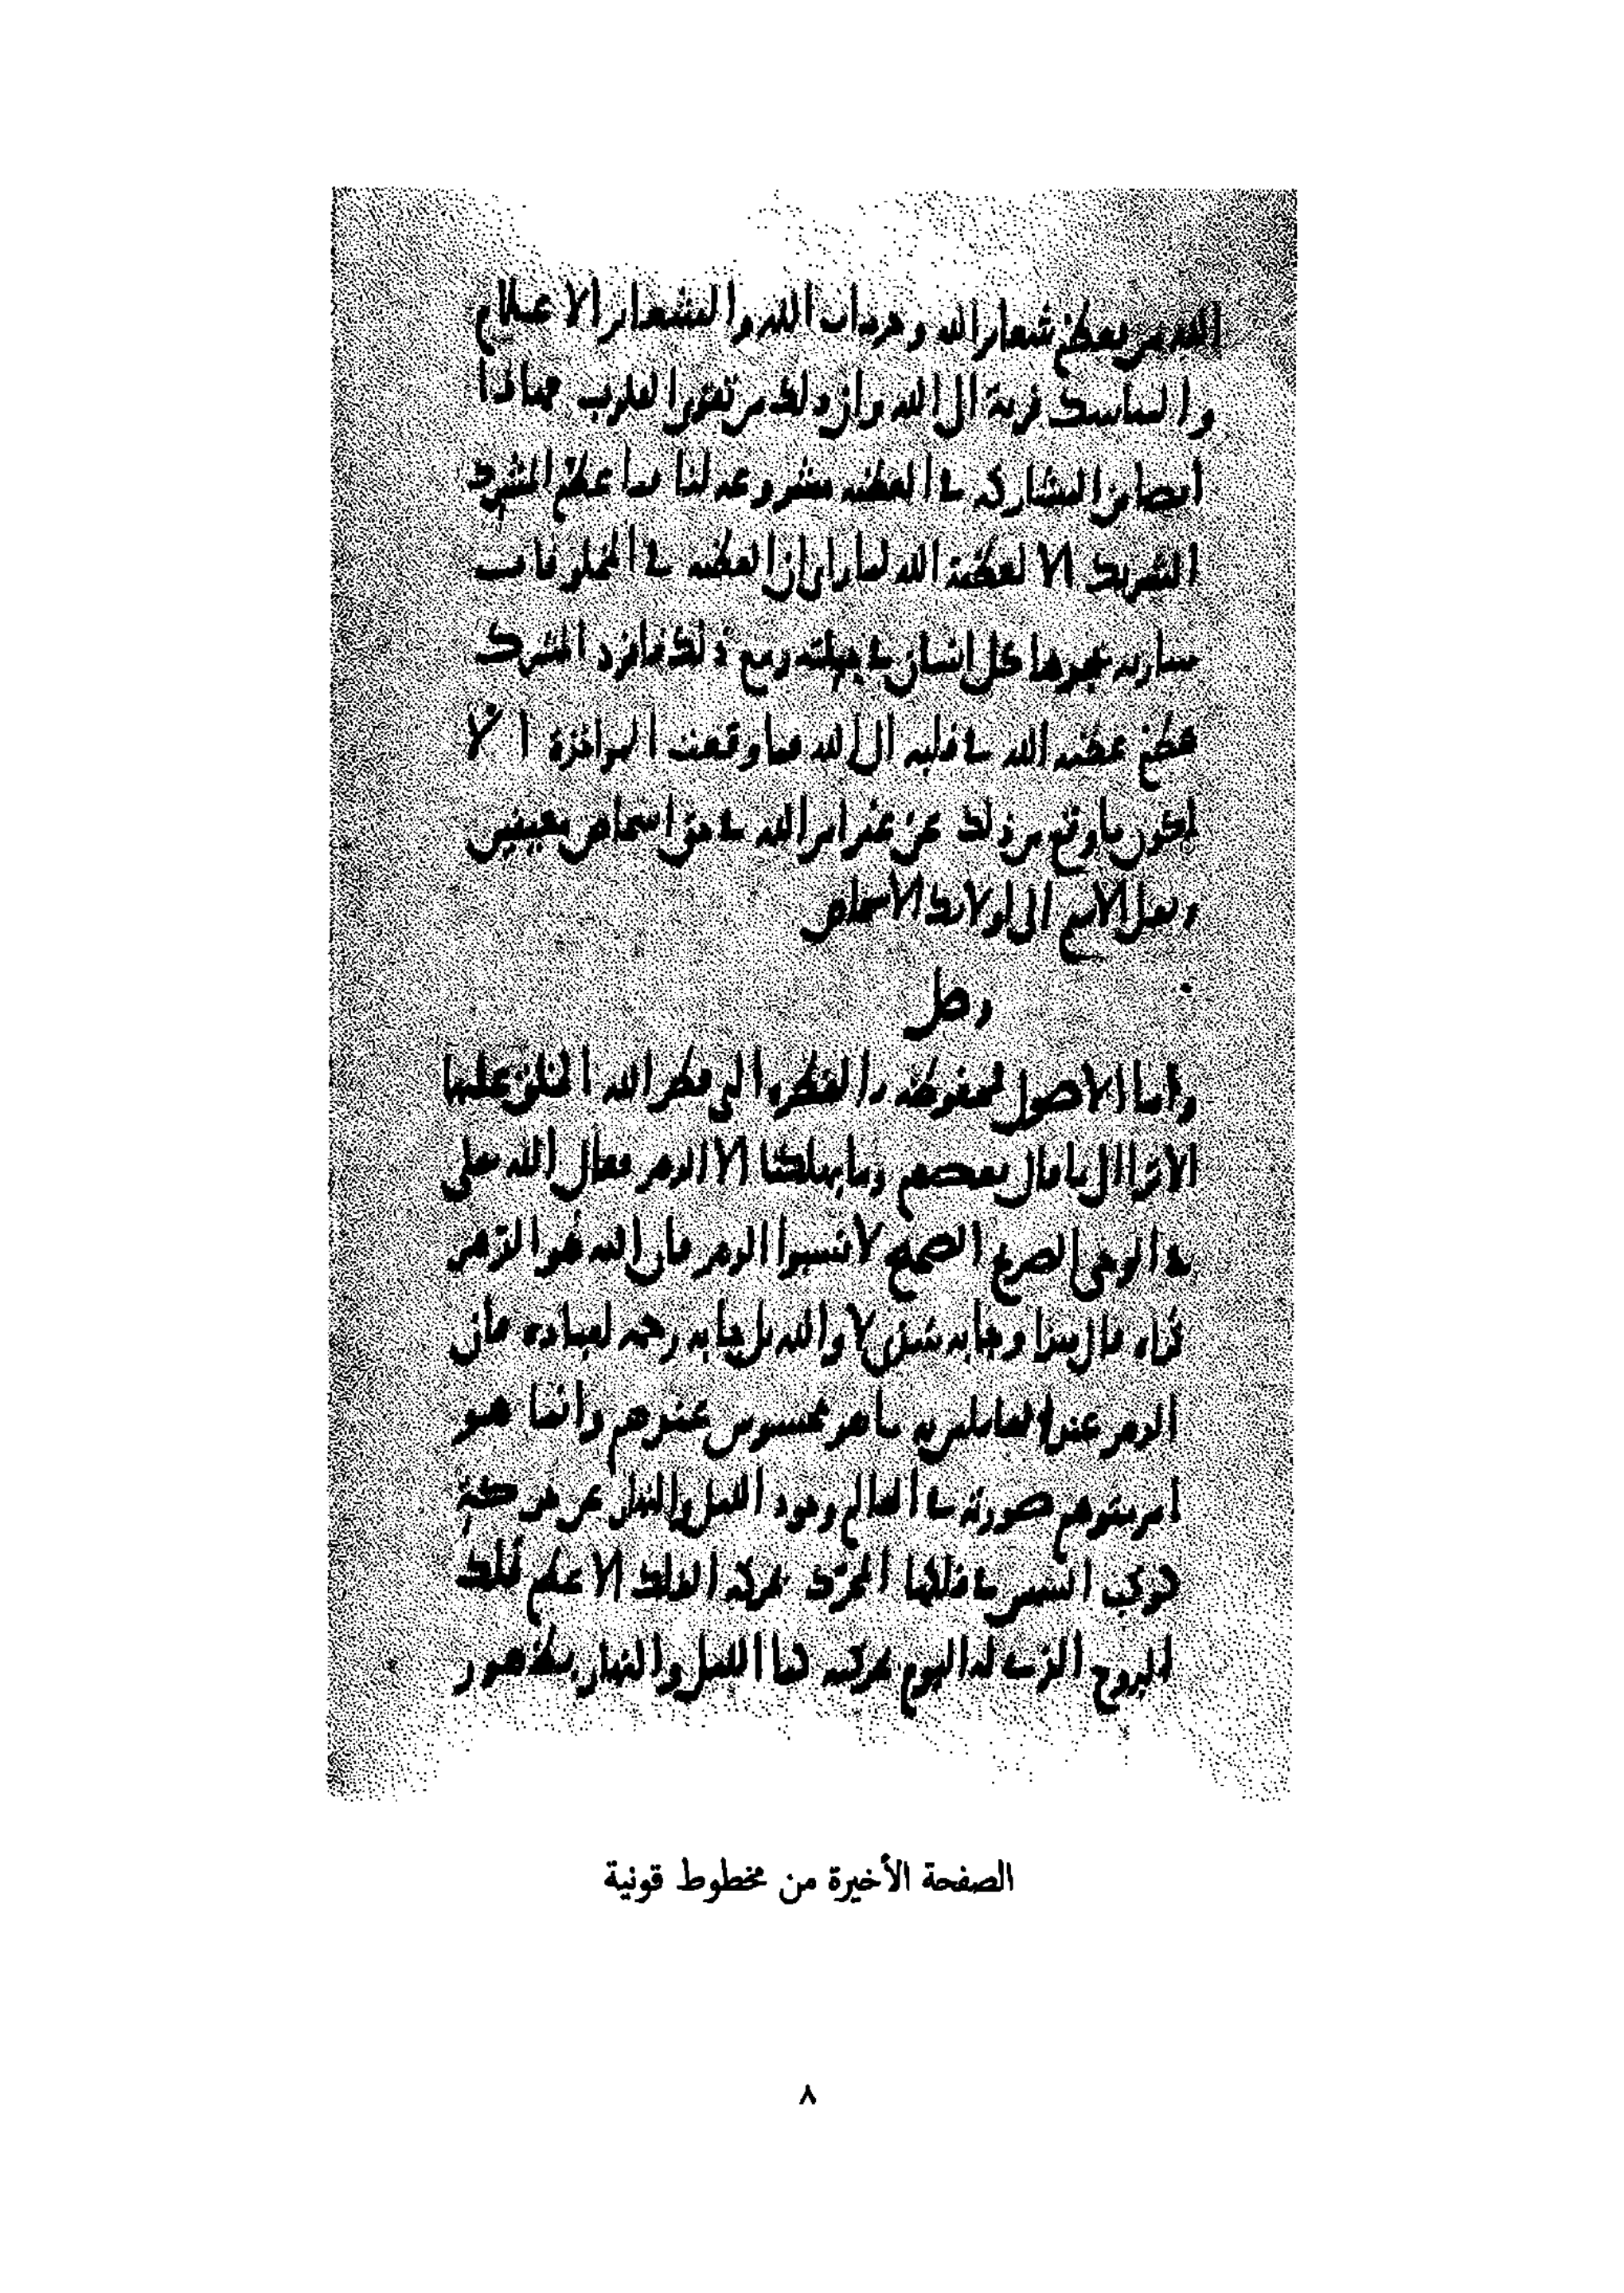 الله من يعظم شعائر الله وحرمات الله والشعائر الاعلام
والمناسك قربة الى الله وان ذلك من تقوى القلوب فهاذا
ايضا من المشاركة في العظمة مشروعه لنا فما عظم المشرك
الشريك الا لعظمة الله لما راى ان العظمه في المخلوقات
سارية يجدها كل انسان في جبلته ومع ذلك فافرد المشرك
عظمه الله في قلبه الى الله فما وقعت المواخذة الا
لكون ما وقع من ذلك عن غير امر الله في حق اشخاص معينين
ونقل الاسم الى اولائك الاشخاص
وصل
واما الاصول محفوظه بالفطره التي فطر الله الخلق عليها
الا ترا الى ما قال بعضهم وما يهلكنا الا الدهر فقال الله على
في الوحي الصريح الصحيح لا تسبوا الدهر فان الله هو الدهر
تراه قال هذا وجا به سدى لا والله بل جا به رحمه لعباده فان
الدهر عند القايلين به ما هو محسوس عندهم وانما هو
امر متوهم صورته في العالم وجود الليل والنهار عن حركة
كوكب الشمس في فلكها المحرك بحركه الفلك الاعظم فلك
البروج الذي له اليوم بحركته كما الليل والنهار بظهور
الصفحة الأخيرة من مخطوط قونية
٨